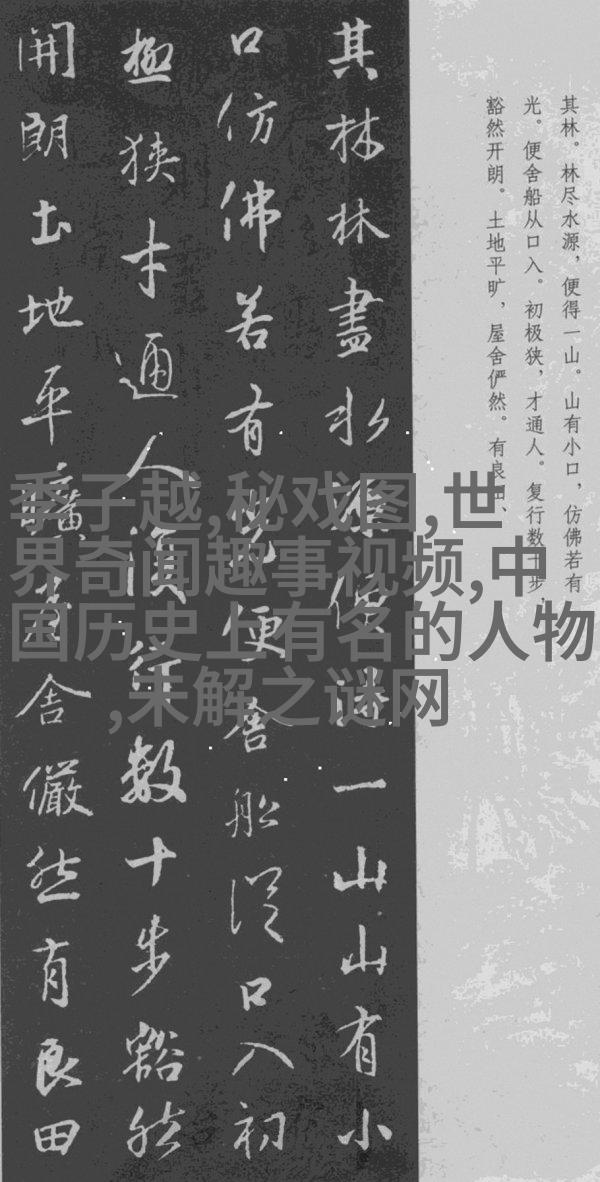 其林。林尽水源，便得一山。山有小口，仿佛若有
光。便舍船从口入。初极狭，才通人。复行数十步，
豁然开朗。土地平旷，屋舍俨然。有良田、
其林林盡水源便得一山山有小
口仿佛若有光便舍船從口入初
極狹才通人復行數十步豁然
開朗土地平曠屋舍儼然有良田
季子越,秘戏图,世
界奇闻趣事视频,中
国历史上有名的人物
,未解之谜网